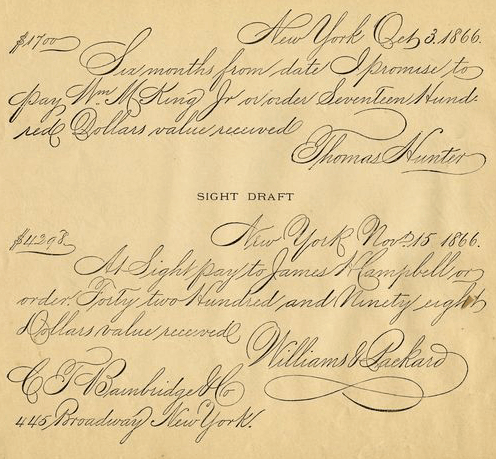 New York Oct 3. 1866.
$1700
Six months from date I promise to
pay Wm M King Jr or order Seventeen Hund-
red Dollars value received
Thomas Hunter
SIGHT DRAFT
New York Nov. 15 1866.
$4298
At Sight pay to James H Campbell or
order. Forty two Hundred and Ninety eight
Dollars value received
Williams & Packard
C T Bambridge & Co
445 Broadway New York.